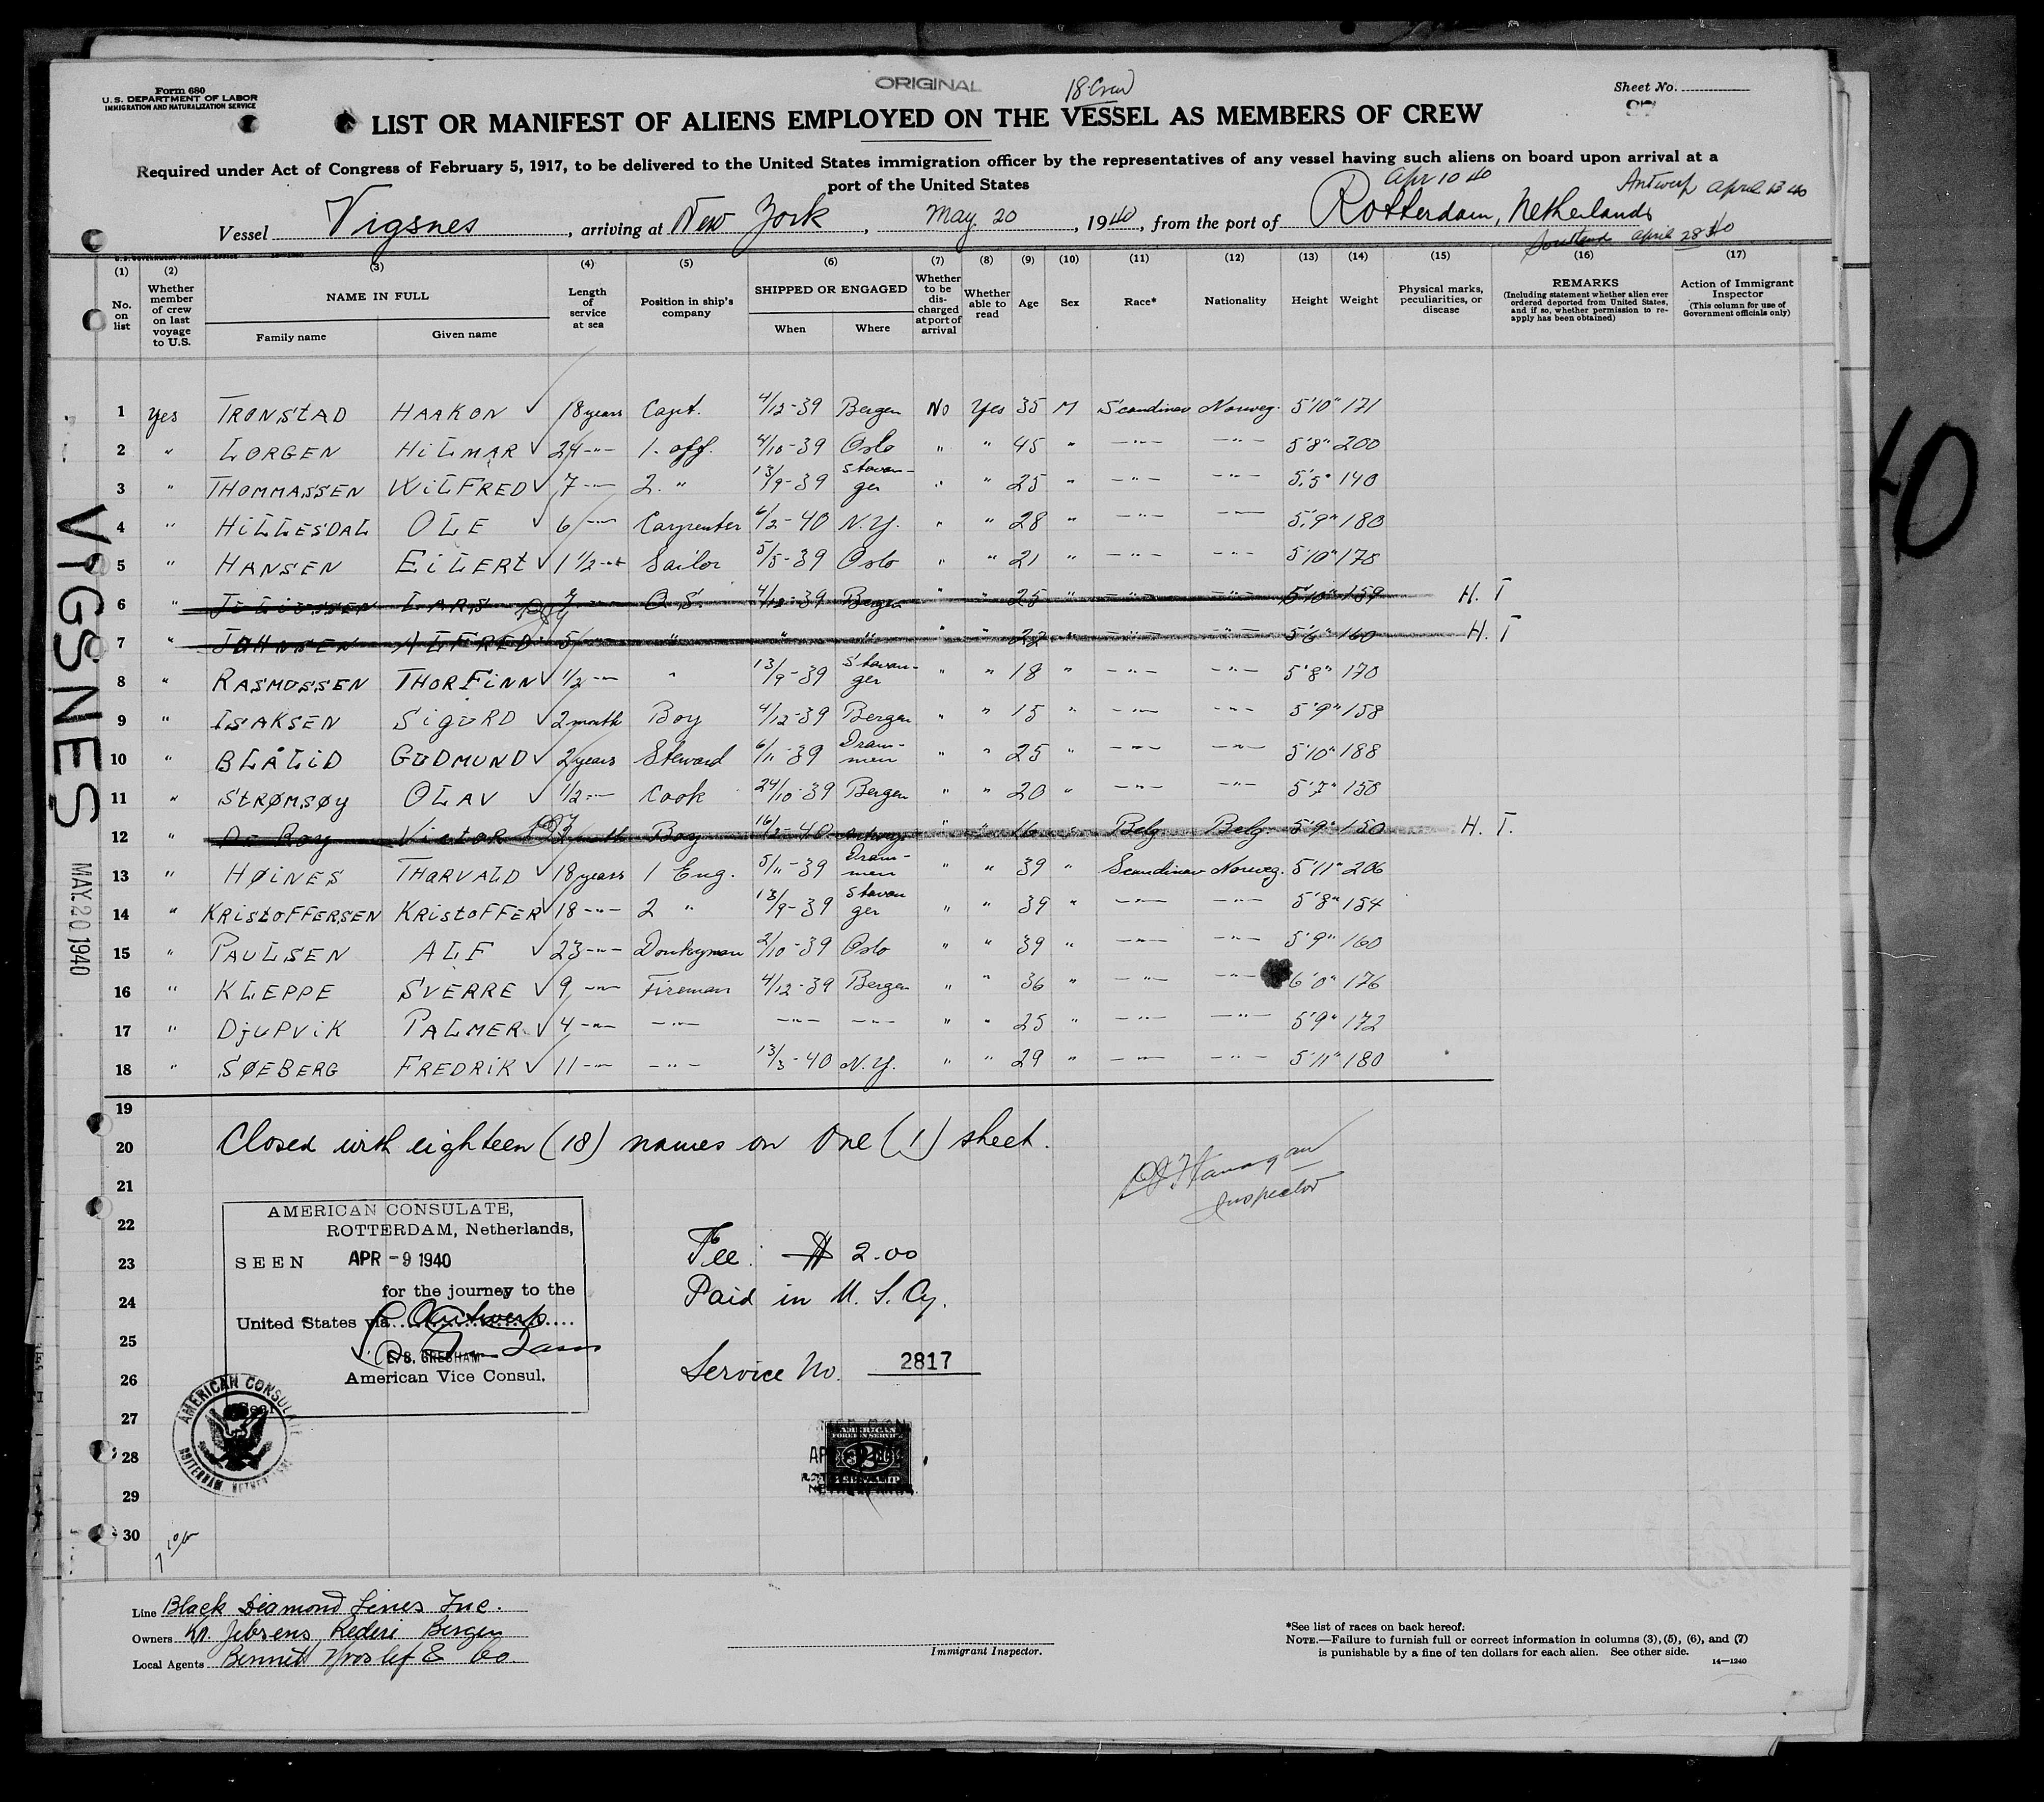 Form 680
U.S. DEPARTMENT OF LABOR
IMMIGRATION AND NATURALIZATION SERVICE
ORIGINAL
18 Crew
Sheet No.
LIST OR MANIFEST OF ALIENS EMPLOYED ON THE VESSEL AS MEMBERS OF CREW
Required under Act of Congress of February 5, 1917, to be delivered to the United States immigration officer by the representatives of any vessel having such aliens on board upon arrival at a
port of the United States
Apr 10 40 Antwerp April 13 40
Vessel Vigsnes, arriving at New York, May 20, 1940, from the port of Rotterdam, Netherlands
April 28 40
(1) (2) (3) (4) (5) (6) (7) (8) (9) (10) (11) (12) (13) (14) (15) (16) (17)
No. on list
Whether member of crew on last voyage to U.S.
NAME IN FULL
Family name Given name
Length of service at sea
Position in ship's company
SHIPPED OR ENGAGED
When Where
Whether to be discharged at port of arrival
Whether able to read
Age
Sex
Race*
Nationality
Height
Weight
Physical marks, peculiarities, or disease
REMARKS
(Including statement whether alien ever ordered deported from United States, and if so, whether permission to re-apply has been obtained)
Action of Immigrant Inspector
(This column for use of Government officials only)
1 Yes TRONSTAD HAAKON ✓ 18 years Capt. 4/12-39 Bergen No Yes 35 M Scandinav Norweg. 5'10" 171
2 " LORGEN HILMAR ✓ 24 -"- 1. off. 4/10-39 Oslo " " 45 " -"- -"- 5'8" 200
3 " THOMMASSEN WILFRED ✓ 7 -"- 2. " 13/9-39 Stavanger " " 25 " -"- -"- 5'5" 140
4 " HILLESDAL OLE ✓ 6 -"- Carpenter 6/2-40 N.Y. " " 28 " -"- -"- 5'9" 180
5 " HANSEN EILERT ✓ 1 1/2 -"- Sailor 5/5-39 Oslo " " 21 " -"- -"- 5'10" 178
6 " LARS O.S. 4/12-39 Bergen " " 25 " -"- -"- 5'10" 159 H. T
7 " JOHNSEN ALFRED 5 -"- " " " " " 22 " -"- -"- 5'6" 160 H. T
8 " RASMUSSEN THORFINN ✓ 1/2 -"- " 13/9-39 Stavanger " " 18 " -"- -"- 5'8" 170
9 " ISAKSEN SIGURD ✓ 2 month Boy 4/12-39 Bergen " " 15 " -"- -"- 5'9" 158
10 " BLÅLID GUDMUND ✓ 2 years Steward 6/11-39 Drammen " " 25 " -"- -"- 5'10" 188
11 " STRØMSØY OLAV ✓ 1/2 -"- Cook 24/10-39 Bergen " " 20 " -"- -"- 5'7" 150
12 " De Roy Victor Boy 16/2-40 Antwerp " " 16 " Belg. Belg. 5'9" 150 H. T.
13 " HØINES THORVALD ✓ 18 years 1 Eng. 5/11-39 Drammen " " 39 " Scandinav Norweg. 5'11" 206
14 " KRISTOFFERSEN KRISTOFFER ✓ 18 -"- 2 " 13/9-39 Stavanger " " 39 " -"- -"- 5'8" 154
15 " PAULSEN ALF ✓ 23 -"- Donkeyman 2/10-39 Oslo " " 39 " -"- -"- 5'9" 160
16 " KLEPPE SVERRE ✓ 9 -"- Fireman 4/12-39 Bergen " " 36 " -"- -"- 6'0" 176
17 " DJUPVIK PALMER ✓ 4 -"- -"- -"- -"- " " 25 " -"- -"- 5'9" 172
18 " SØEBERG FREDRIK ✓ 11 -"- -"- 13/3-40 N.Y. " " 29 " -"- -"- 5'11" 180
19
20 Closed with eighteen (18) names on One (1) sheet.
21
22
23
24
25
26
27
28
29
30
Inspector
VIGSNES
MAY 20 1940
AMERICAN CONSULATE,
ROTTERDAM, Netherlands,
SEEN APR -9 1940
for the journey to the
United States via Antwerp
E.B. GRESHAM
American Vice Consul.
AMERICAN CONSULATE
ROTTERDAM NETHERLANDS
Fee: $ 2.00
Paid in U. S. Cy.
Service No. 2817
AMERICAN
FOREIGN SERVICE
Line Black Diamond Lines Inc.
Owners Kr. Jebsens Rederi Bergen
Local Agents Bennett Hvoslef & Co.
Immigrant Inspector.
*See list of races on back hereof.
NOTE.—Failure to furnish full or correct information in columns (3), (5), (6), and (7)
is punishable by a fine of ten dollars for each alien. See other side.
14—1240